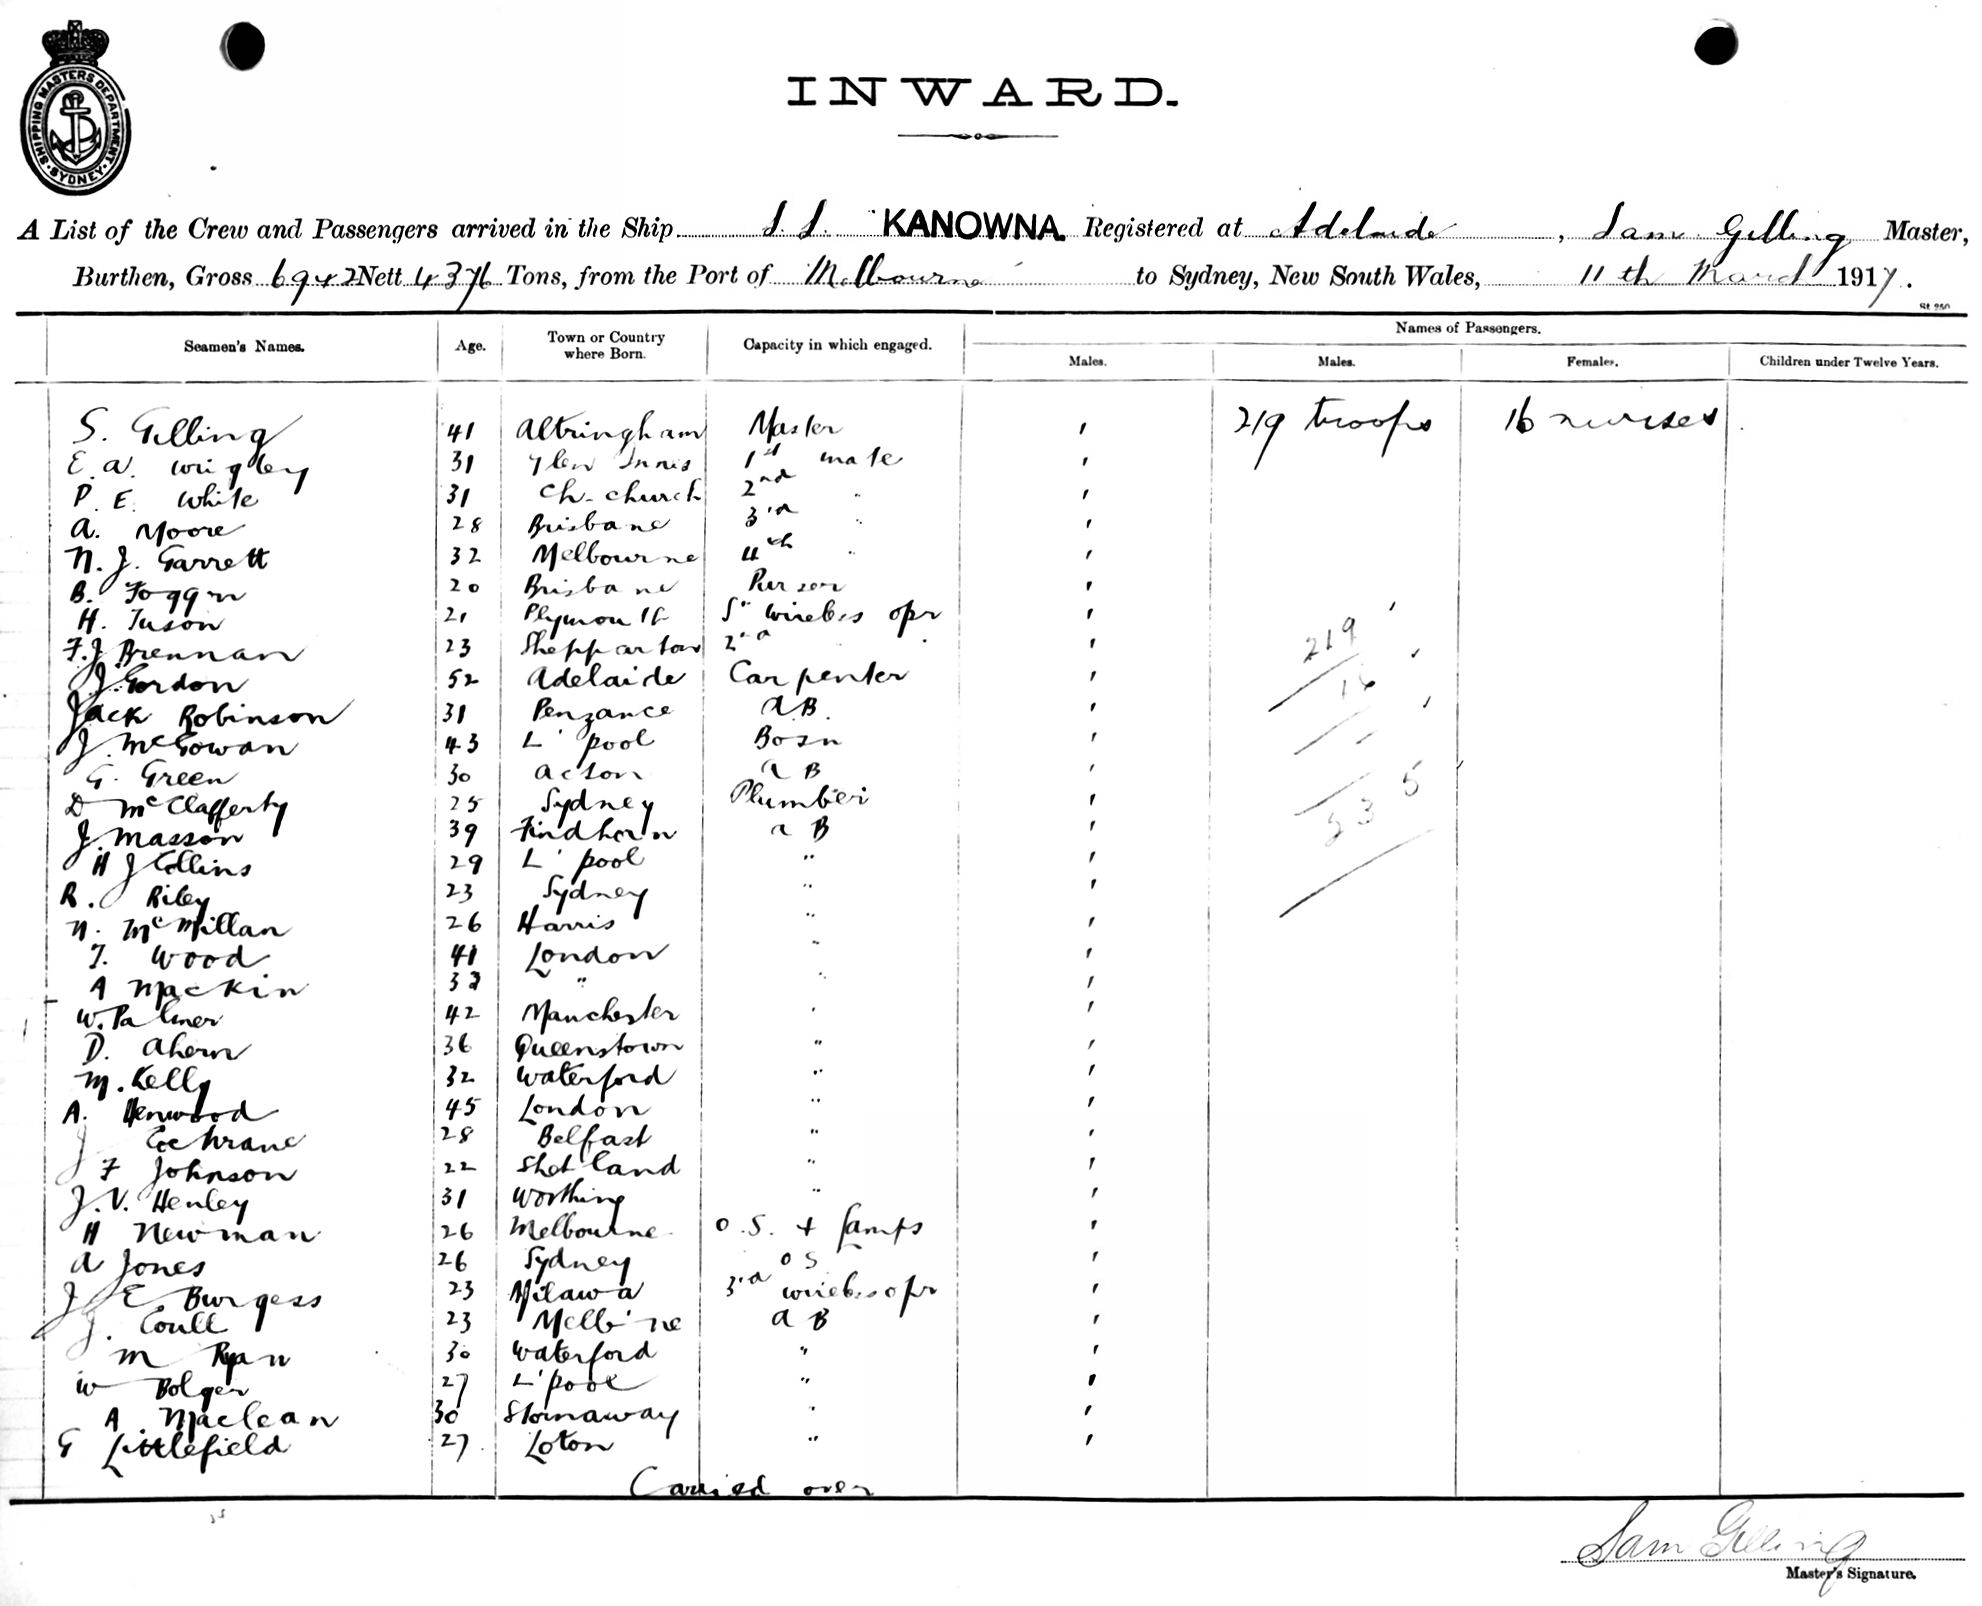 SHIPPING MASTERS DEPARTMENT · SYDNEY ·
INWARD.
A List of the Crew and Passengers arrived in the Ship S.S. KANOWNA Registered at Adelaide, Sam Gilling Master,
Burthen, Gross 6942 Nett 4376 Tons, from the Port of Melbourne to Sydney, New South Wales, 11th March 1917.
Seamen's Names. Age. Town or Country where Born. Capacity in which engaged. Names of Passengers.
Males. Males. Females. Children under Twelve Years.
S. Gilling 41 Altringham Master ' 219 troops 16 nurses
E. A. Wrigley 31 Glen Innis 1st mate '
P. E. White 31 Ch-church 2nd " '
A. Moore 28 Brisbane 3rd " '
N. J. Garrett 32 Melbourne 4th " '
B. Foggin 20 Brisbane Purser '
H. Tuson 21 Plymouth Sr wireless opr '
F. J. Brennan 23 Shepparton 2nd " '
J. Gordon 52 Adelaide Carpenter '
Jack Robinson 31 Penzance A.B. '
J. McGowan 43 L'pool Bosn '
G. Green 30 Acton A B '
D McClafferty 25 Sydney Plumber '
J. Masson 39 Findhorn A B '
H J Collins 29 L'pool " '
R. Riley 23 Sydney " '
N. McMillan 26 Harris " '
T. Wood 41 London " '
A Mackin " " '
W. Palmer 42 Manchester " '
D. Ahern 36 Queenstown " '
M. Kelly 32 Waterford " '
A. Henwood 45 London " '
J Cochrane 28 Belfast " '
F Johnson 22 Shetland " '
J. V. Henley 31 Worthing " '
H Newman 26 Melbourne O.S. + Lamps '
A Jones 26 Sydney O S '
J E Burgess 23 Milawa 3rd wireless opr '
J. Coull 23 Melb'ne A B '
M Ryan 30 Waterford " '
W Bolger 27 L'pool " '
A. Maclean 30 Stornaway " '
G Littlefield 27 Loton " '
219
16
235
Carried over
Sam Gilling
Master's Signature.